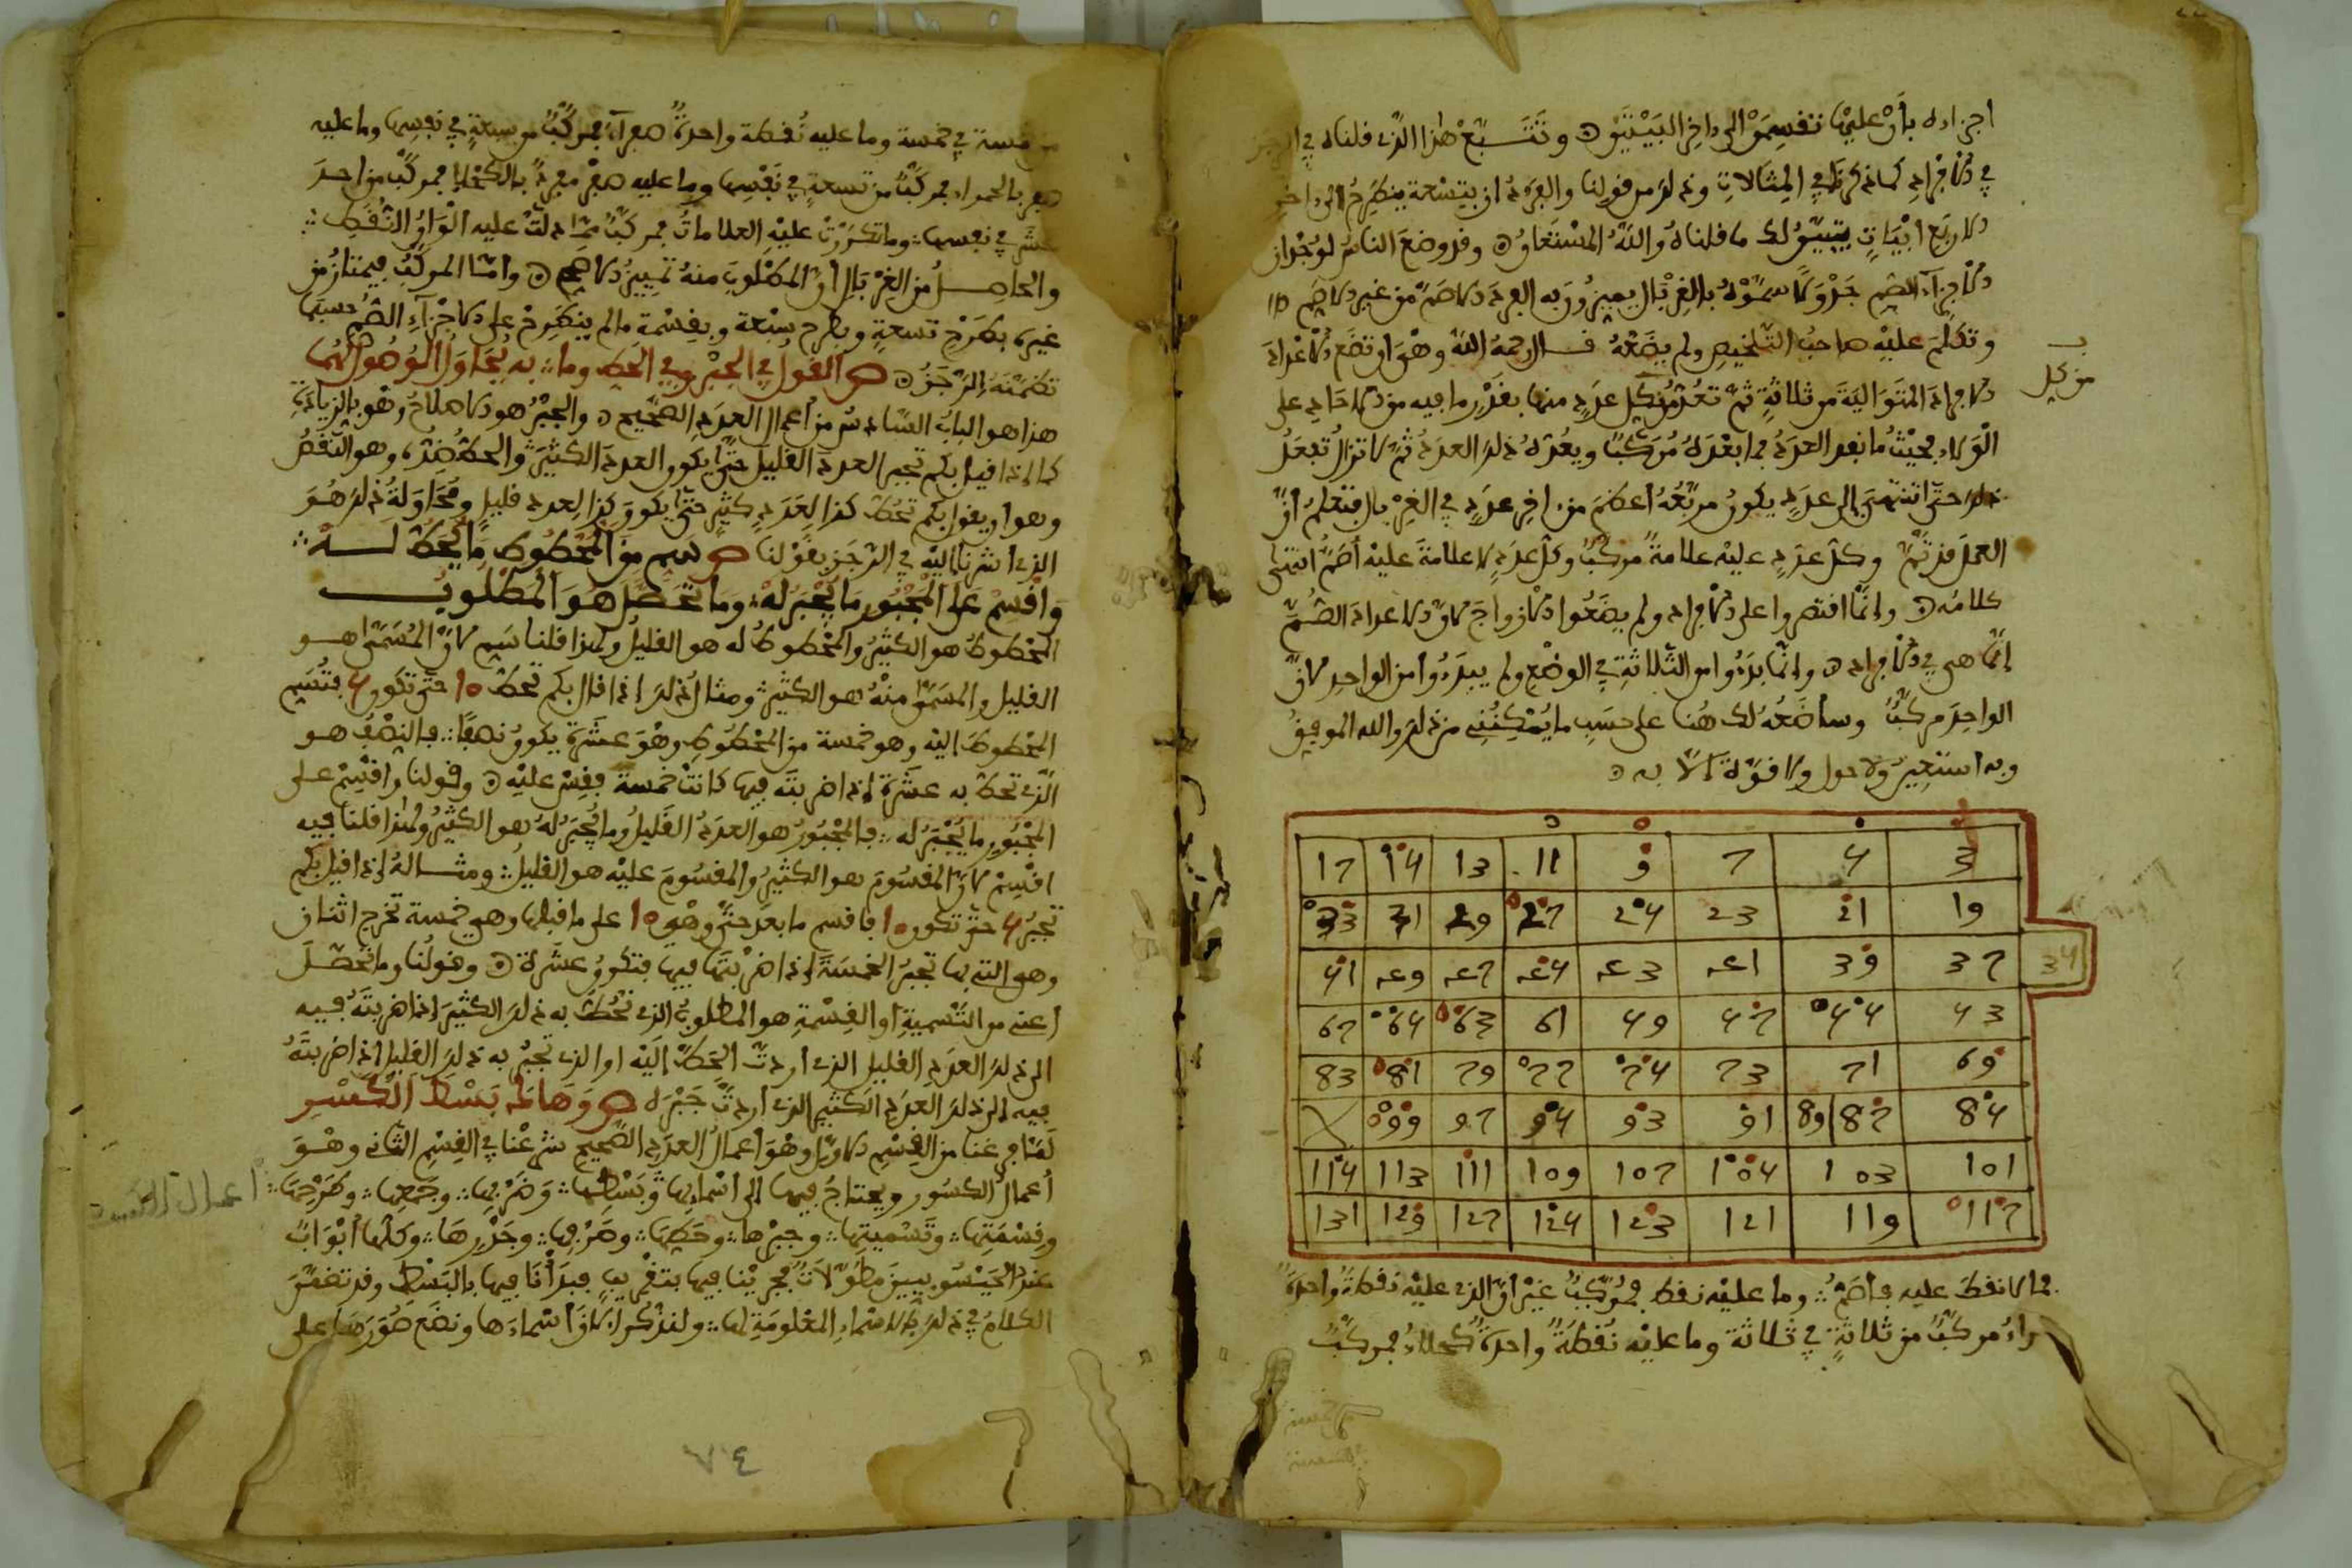 اجزاءه بأن عليها تنقسم إلى داخر البيتين وتتبع هذا الذي قلناه في الرجز
في الأفراد كما ذكر في المثالات وذلك من قولنا والفرد ان بتسعة ينطرح إلى اخر
الاربع ابيات يتبين لك ما قلناه والله المستعان وقد وضع الناس لوجدان
الاجزاء الصم جدولا سموه بالغربال يميزون به العدد الاصم من غير الاصم
وتكلم عليه صاحب التلخيص ولم يضعه قال رحمه الله وهو ان تضع الاعداد
الافراد المتوالية من ثلاثة ثم تعد من كل عدد منها بقدر ما فيه من الآحاد على
الولاء بحيث ما نفد العدد فما بعده مركب ويعده ذلك العدد ثم لا تزال تفعل
ذلك حتى تنتهي إلى عدد يكون مربعه أعظم من اخر عدد في الغربال فتعلم أن
العمل قد تم وكل عدد عليه علامة مركب وكل عدد لا علامة عليه أصم انتهى
كلامه وإنما اقتصروا على الأفراد ولم يضعوا الازواج لان الاعداد الصم
إنما هي في الأفراد وإنما بدءوا من الثلاثة في الوضع ولم يبدءوا من الواحد لان
الواحد مركب وسأضعه لك هنا على حسب ما يمكنني من ذلك والله الموفق
وبه استعين ولا حول ولا قوة إلا به
من كل
17 14 13 11 9 7 4 3
33 31 29 27 24 23 21 19
41 عو 49 47 44 43 41 39 37
34
67 64 63 61 49 47 44 43
83 81 79 77 74 73 71 69
99 97 94 93 91 89 87 84
114 113 111 109 107 104 103 101
131 129 127 124 123 121 119 117
فما لا نقط عليه فأصم وما عليه نقط فمركب غير أن الذي عليه نقطة واحدة
مركب من ثلاثة في ثلاثة وما عليه نقطة واحدة كحلاء فمركب
من خمسة في خمسة وما عليه نقطة واحدة صفراء فمركب من سبعة في نفسها وما عليه
صفر بالحمراء فمركب من تسعة في نفسها وما عليه صفر مفرد بالكحلاء فمركب من احد
عشر في نفسها وما تكررت عليه العلامات فمركب مما دلت عليه ألوان النقط
والحاصل من الغربال أن المطلوب منه تمييز الاصم وأما المركب فيمتاز من
غيره بطرح تسعة وبطرح سبعة وبقسمة ما لم ينطرح على الاجزاء الصم حسبما
تضمنه الرجز القول في الجبر وفي الحط وما به يحاول الوصول لهما
هذا هو الباب السادس من أعمال العدد الصحيح والجبر هو الاصلاح وهو بالزيادة
كما إذا قيل بكم تجبر العدد القليل حتى يكون العدد الكثير والحط ضده وهو النقص
وهو أن يقول بكم تحط كذا لعدد كثير حتى يكون كذا لعدد قليل ومحاولة ذلك هو
الذي أشرنا إليه في الرجز بقولنا سم من المحطوط ما يحط له
واقسم على المجبور ما يجبر له وما تحصل هو المطلوب
المحطوط هو الكثير والمحطوط له هو القليل ولهذا قلنا سم لان المسمى هو
القليل والمسمى منه هو الكثير ومثال ذلك إذا قال بكم تحط 10 حتى تكون 4 فتسم
المحطوط إليه وهو خمسة من المحطوط وهو عشرة يكون نصفا فالنصف هو
الذي تحط به عشرة إذا ضربته فيها كانت خمسة فقس عليه وقولنا واقسم على
المجبور ما يجبر له فالمجبور هو العدد القليل وما يجبر له هو الكثير ولهذا قلنا فيه
اقسم لان المقسوم هو الكثير والمقسوم عليه هو القليل ومثاله إذا قيل بكم
تجبر 4 حتى تكون 10 فاقسم ما بعد حتى وهو 10 على ما قبلها وهي خمسة تخرج اثنان
وهو التي بها تجبر الخمسة إذا ضربتها فيها فتكون عشرة وقولنا وما تحصل
أعني من التسمية أو القسمة هو المطلوب الذي تحط به ذلك الكثير إذا ضربته فيه
إلى ذلك العدد القليل الذي أردت الحط إليه أو الذي تجبر به ذلك القليل إذا ضربته
فيه إلى ذلك العدد الكثير الذي أردت جبره وهاك بسط الكسر
لما فرغنا من القسم الاول وهو أعمال العدد الصحيح شرعنا في القسم الثاني وهو
أعمال الكسور ويحتاج فيها إلى اسمائها وبسطها وضربها وجمعها وطرحها
وقسمتها وتسميتها وجبرها وحطها وصرفها وجذرها وكلها أبواب
عند الحيسوبيين مطولات فجرينا فيها بتقريب فبدأنا فيها بالبسط وقد تقدم
الكلام في ذلك بالاسماء المعلومة لها ولنذكر الان أسماءها ونضع صورها على
اعمال الكسور